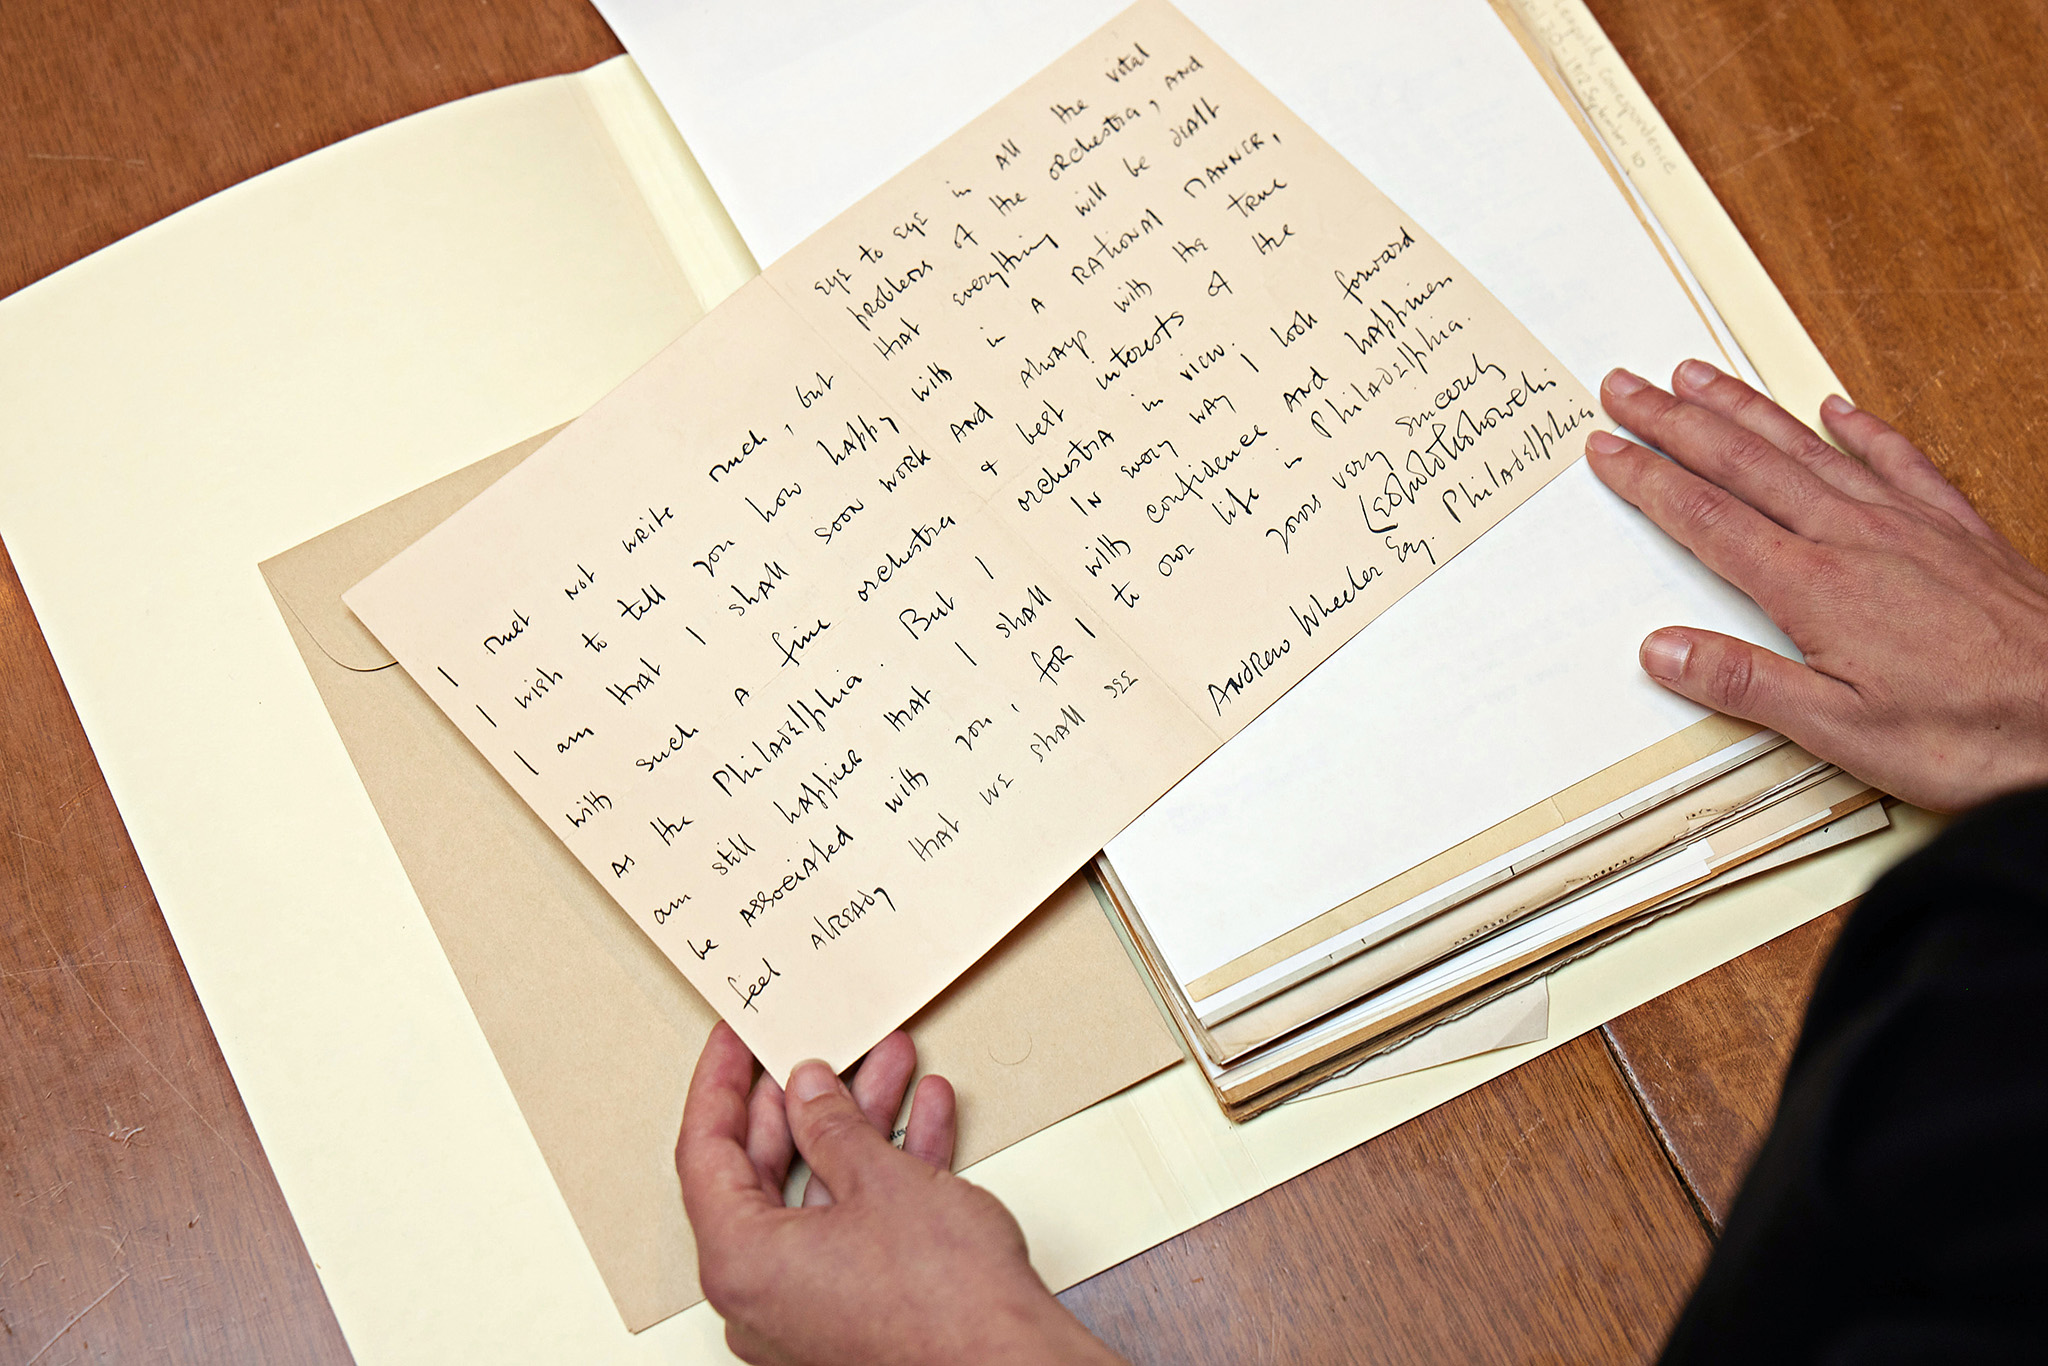 I must not write much, but
I wish to tell you how happy
I am that I shall soon work with
with such a fine orchestra
as the Philadelphia. But I
am still happier that I shall
be associated with you, for I
feel already that we shall see
eye to eye in all the vital
problems of the orchestra, and
that everything will be dealt
with in a rational manner,
and always with the true
+ best interests of the
orchestra in view.
In every way I look forward
with confidence and happiness
to our life in Philadelphia.
yours very sincerely
Leopold Stokowski
Andrew Wheeler Esq. Philadelphia
Leopold, Correspondence
September 10